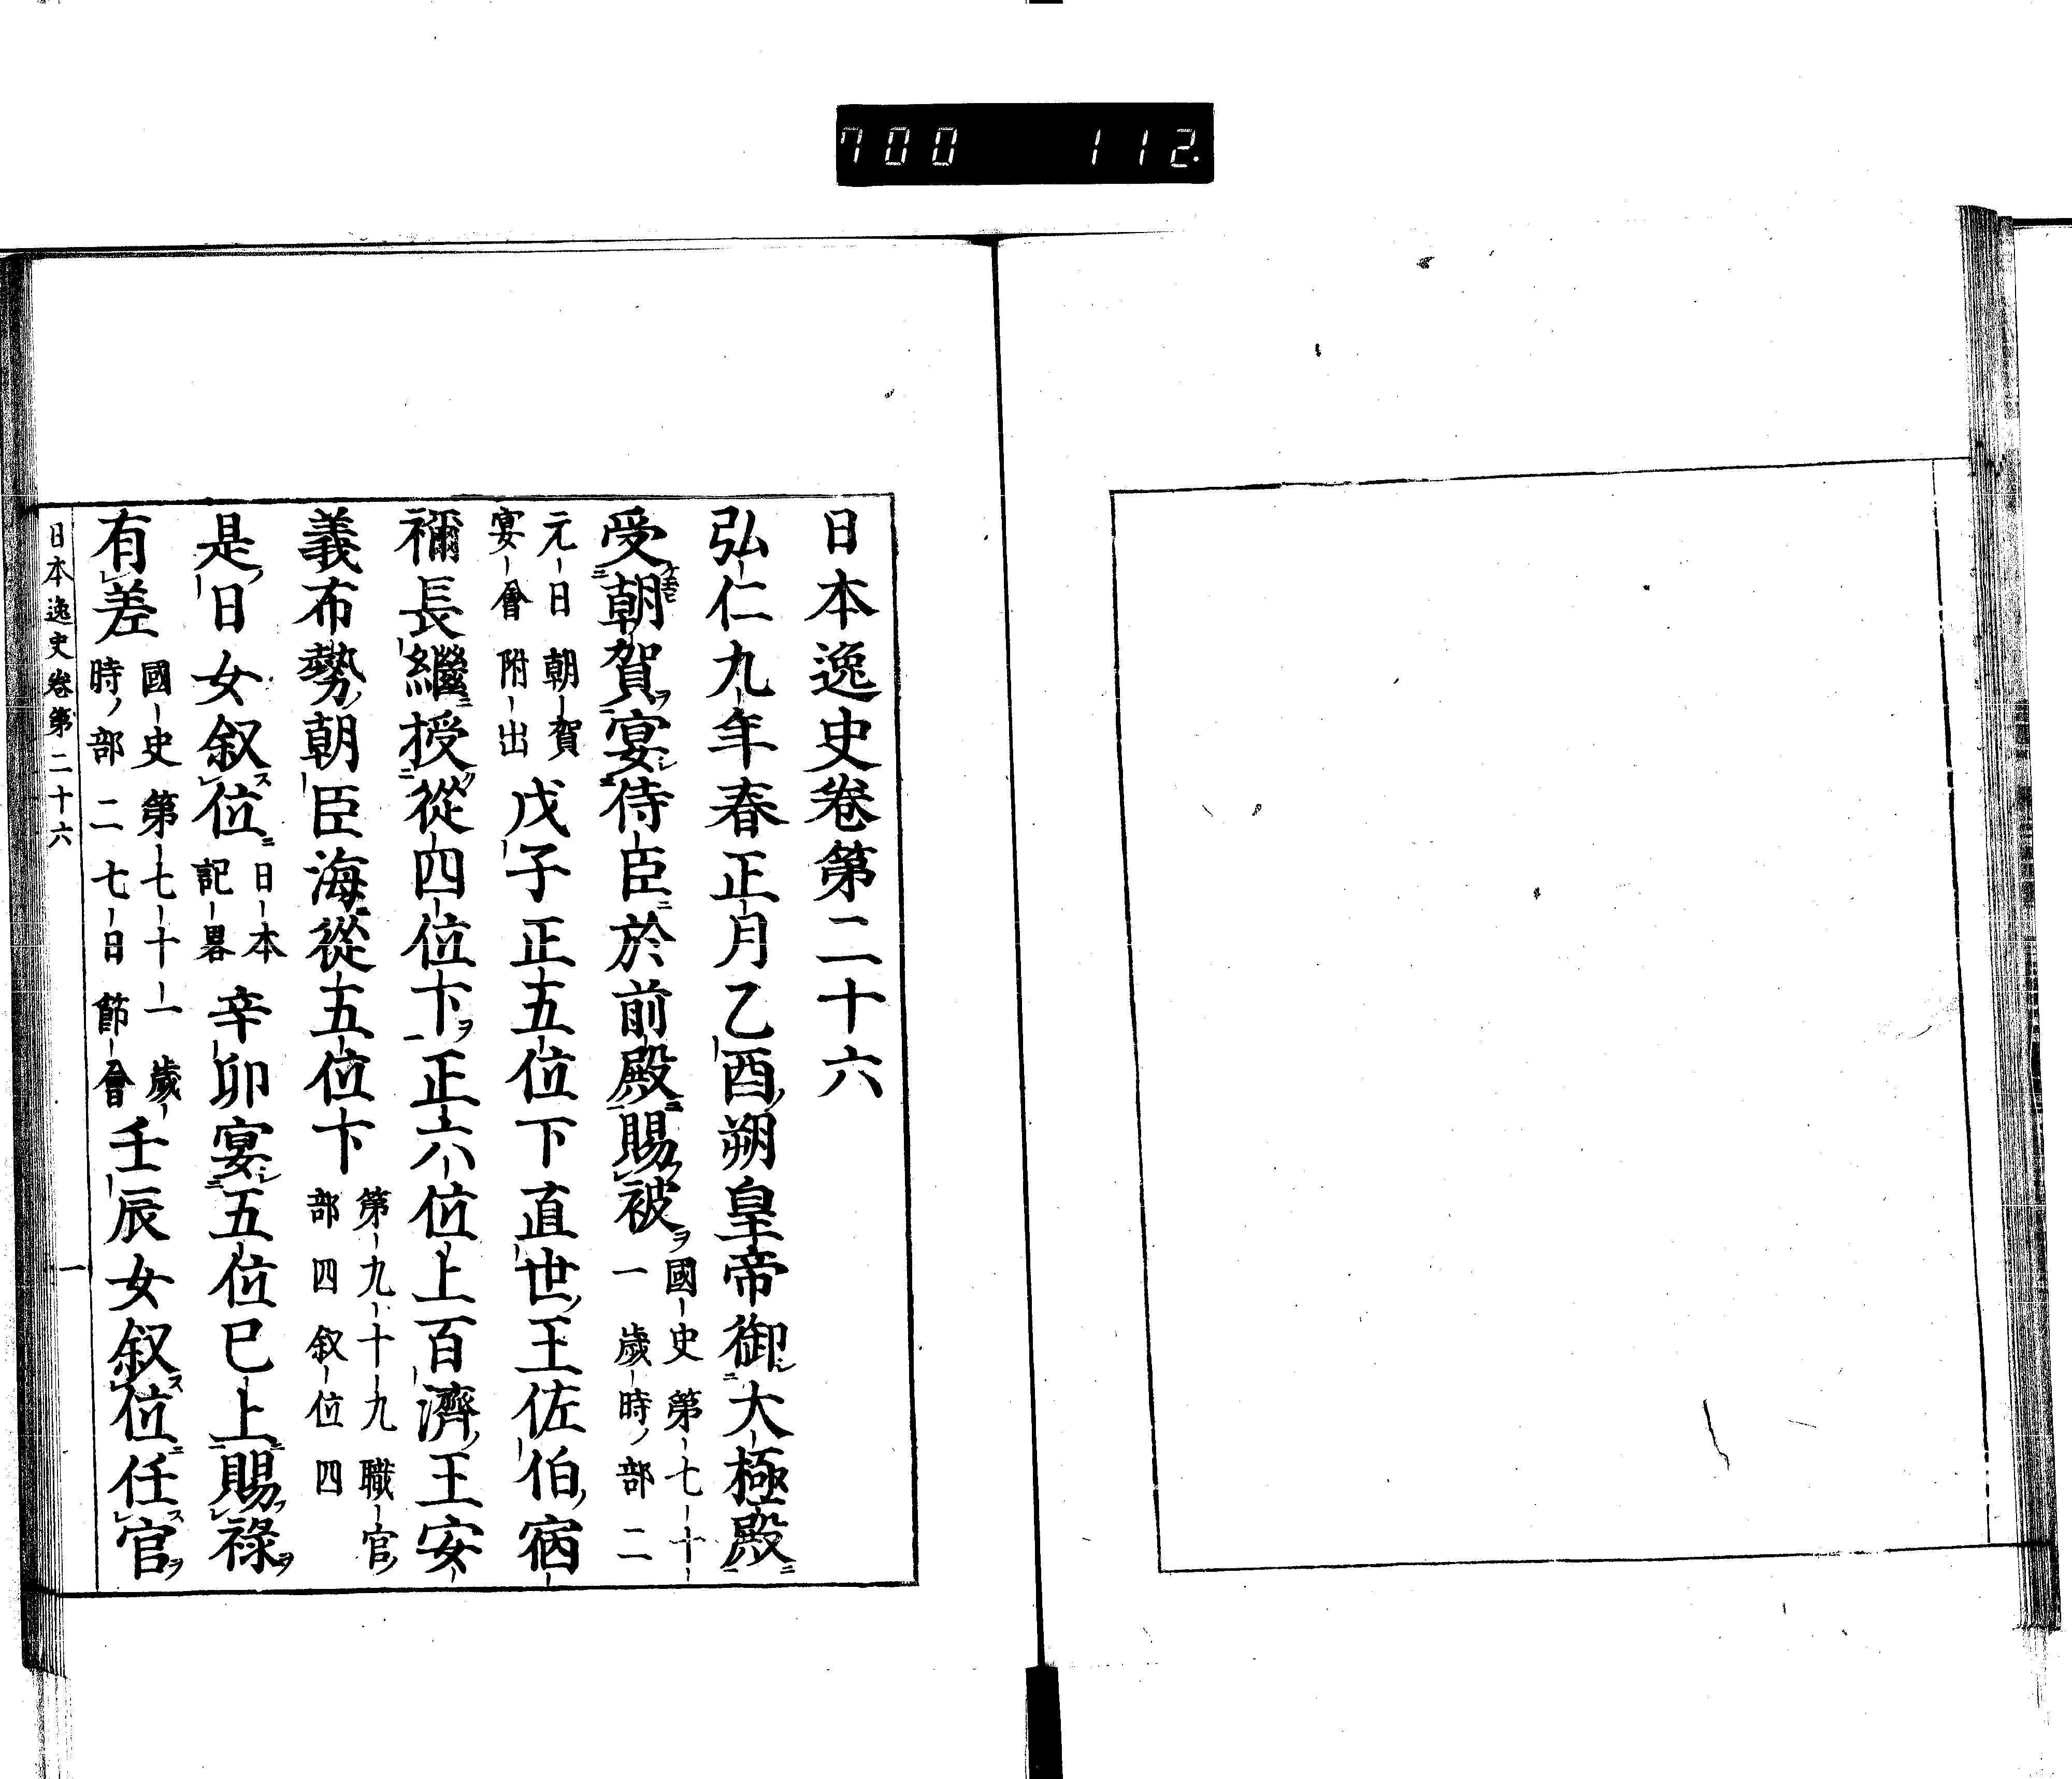 700 112.
日本逸史卷第二十六
弘仁九年春正月乙酉朔皇帝御大極殿
受朝賀宴侍臣於前殿賜被國史第七十一歲時部二
元日朝賀宴會附出戊子正五位下直世王佐伯宿
禰長繼授從四位下正六位上百濟王安
義布勢朝臣海從五位下第九十九職官部四叙位四
是日女叙位日本記畧辛卯宴五位已上賜祿
有差國史第七十一歲時部二七日節會壬辰女叙位任官
日本逸史卷第二十六 一